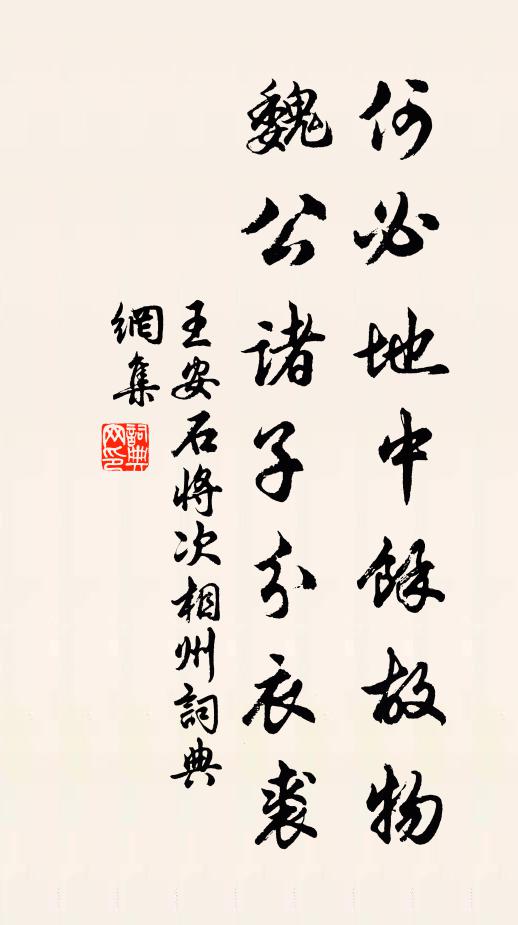 何必地中餘故物
魏公諸子分衣裘
王安石將次相州詞典
網集
詞典
网印